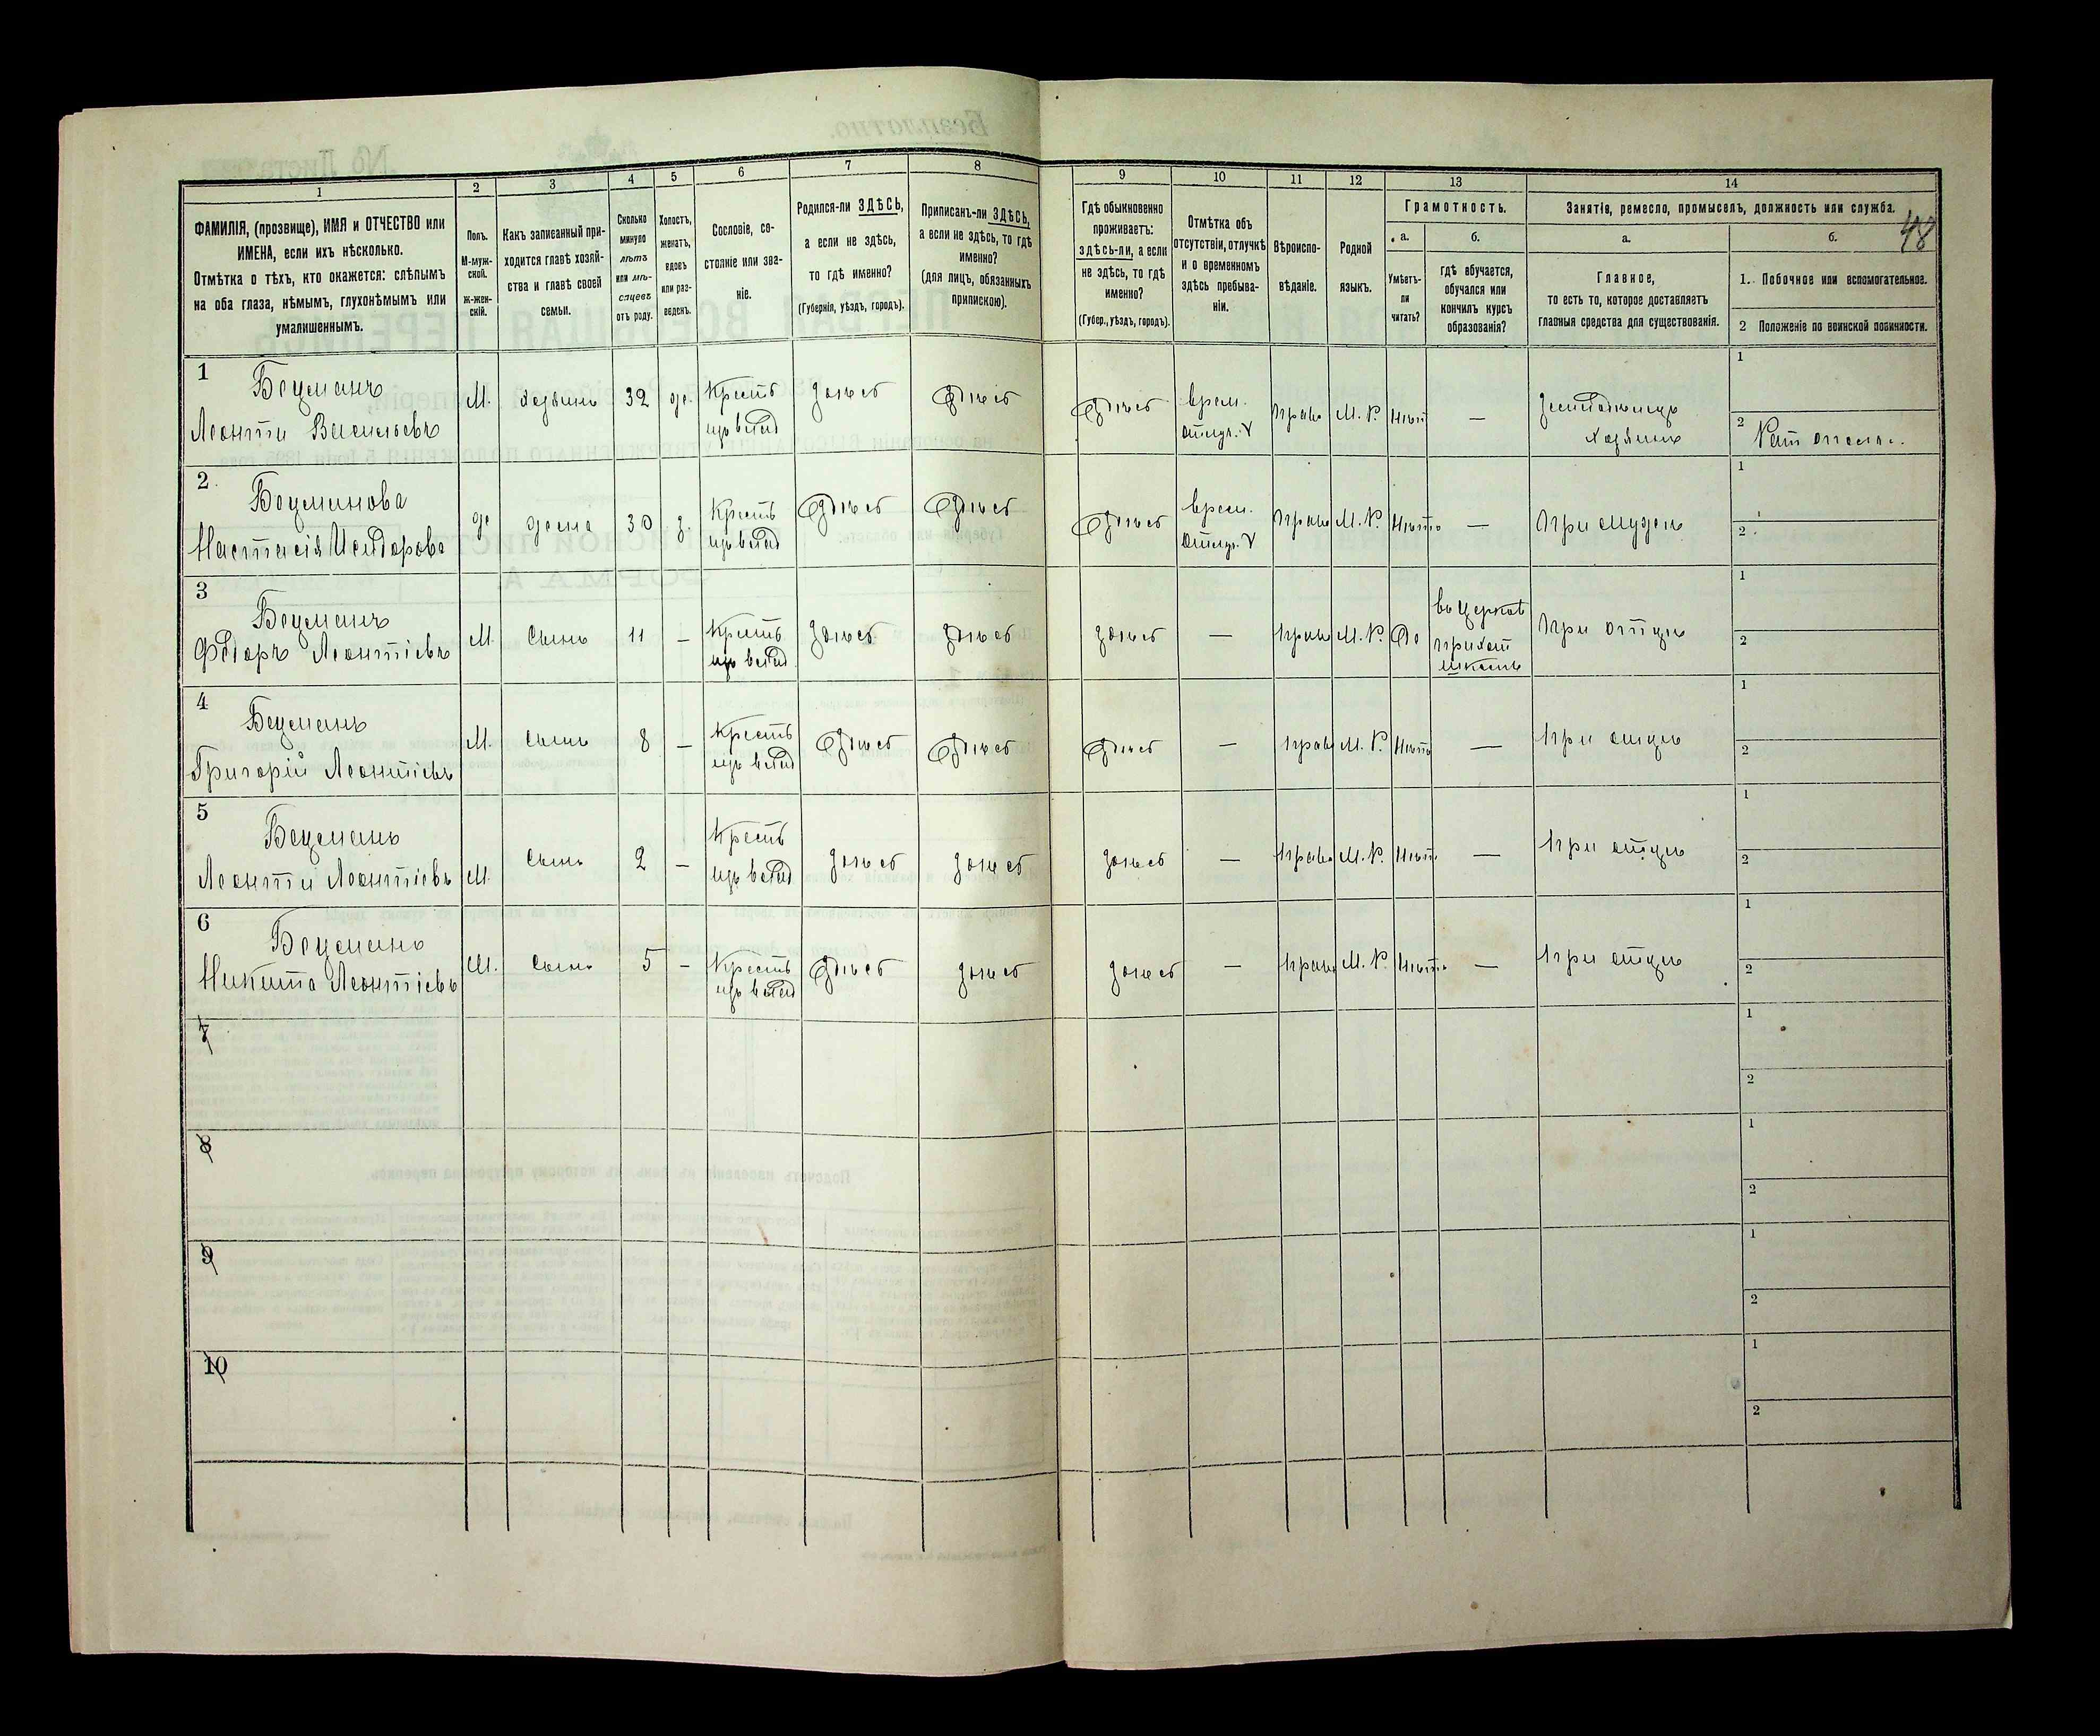 48
1 2 3 4 5 6 7 8 9 10 11 12 13 14
ФАМИЛІЯ, (прозвище), ИМЯ и ОТЧЕСТВО или
ИМЕНА, если ихъ нѣсколько.
Отмѣтка о тѣхъ, кто окажется: слѣпымъ
на оба глаза, нѣмымъ, глухонѣмымъ или
умалишеннымъ.
Полъ.
М-муж-
ской.
Ж-жен-
скій.
Какъ записанный при-
ходится главѣ хозяй-
ства и главѣ своей
семьи.
Сколько
минуло
лѣтъ
или мѣ-
сяцевъ
отъ роду.
Холостъ,
женатъ,
вдовъ
или раз-
веденъ.
Сословіе, со-
стояніе или зва-
ніе.
Родился-ли ЗДѢСЬ,
а если не здѣсь,
то гдѣ именно?
(Губернія, уѣздъ, городъ).
Приписанъ-ли ЗДѢСЬ,
а если не здѣсь, то гдѣ
именно?
(для лицъ, обязанныхъ
припискою).
Гдѣ обыкновенно
проживаетъ:
здѣсь-ли, а если
не здѣсь, то гдѣ
именно?
(Губер., уѣздъ, городъ).
Отмѣтка объ
отсутствіи, отлучкѣ
и о временномъ
здѣсь пребыва-
ніи.
Вѣроиспо-
вѣданіе.
Родной
языкъ.
Грамотность.
а.
Умѣетъ-
ли
читать?
б.
гдѣ обучается,
обучался или
кончилъ курсъ
образованія?
Занятіе, ремесло, промыселъ, должность или служба.
а.
Главное,
то есть то, которое доставляетъ
главныя средства для существованія.
б.
1. Побочное или вспомогательное.
2 Положеніе по воинской повинности.
1
Бецманъ
Леонти Васильевъ
М. хозяинъ 32 ж. Крестъ
изъ влад
здѣсь здѣсь здѣсь
врем.
отлуч.
Прав М. Р. Нѣт —
Земледѣлецъ
хозяинъ
1
2
2
Бецманова
Настасія Исидорова
ж жена 30 з. Крестъ
изъ влад
здѣсь здѣсь здѣсь
врем.
отлуч.
Прав М. Р. Нѣтъ — При мужѣ
1
2
3
Бецманъ
Фёдоръ Леонтіевъ
М. Сынъ 11 — Крестъ
изъ влад
здѣсь здѣсь здѣсь — Прав М. Р. Да
въ церков
приход
школѣ
При отцѣ
1
2
4
Бецманъ
Григорій Леонтіевъ
М. Сынъ 8 — Крестъ
изъ влад
здѣсь здѣсь здѣсь — Прав М. Р. Нѣтъ — При отцѣ
1
2
5
Бецманъ
Леонти Леонтіевъ
М. Сынъ 2 — Крестъ
изъ влад
здѣсь здѣсь здѣсь — Прав М. Р. Нѣтъ — При отцѣ
1
2
6
Бецманъ
Никита Леонтіевъ
М. Сынъ 5 — Крестъ
изъ влад
здѣсь здѣсь здѣсь — Прав М. Р. Нѣтъ — При отцѣ
1
2
7
1
2
8
1
2
9
1
2
10
1
2